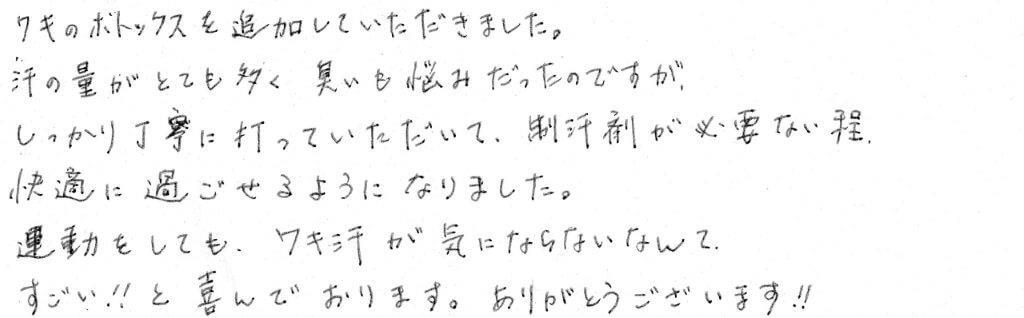 ワキのボトックスを追加していただきました。
汗の量がとても多く 臭いも悩みだったのですが、
しっかり丁寧に打っていただいて、制汗剤が必要ない程、
快適に過ごせるようになりました。
運動をしても、ワキ汗が気にならないなんて、
すごい!!と喜んでおります。ありがとうございます!!